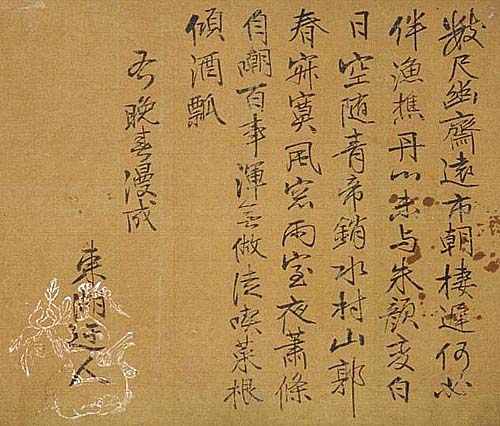 數尺幽齋遠市朝棲遲何必
伴漁樵丹心未与朱顏変白
日空随青帝銷水村山郭
春寂寞風窓雨室夜蕭條
自嘲百事渾無做徒喫菜根
傾酒瓢
右晩春漫成
東湖迂人